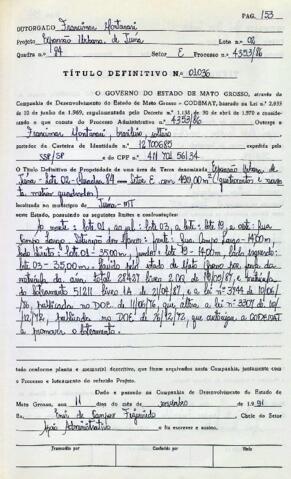 PÁG. 153
OUTORGADO Francimar Montanari
Projeto Expansão Urbana de Juína Lote n.o 02
Quadra n.o 84 Setor E Processo n.o 4353/86
TÍTULO DEFINITIVO N.o 01036
O GOVERNO DO ESTADO DE MATO GROSSO, através da
Companhia de Desenvolvimento do Estado de Mato Grosso - CODEMAT, baseado na Lei n.o 2.935
de 10 de Junho de 1.969, regulamentado pelo Decreto n.o 1.138 de 30 de abril de 1.970 e considerando
o que consta do Processo Administrativo n.o 4353/86 Outorga a
Francimar Montanari, brasileiro, solteiro
portador da Carteira de Identidade n.o 12700685 expedida pela
SSP/SP e do CPF n.o 411 701 561 34
O Título Definitivo de Propriedade de uma área de Terra denominada Expansão Urbana de
Juína - Lote 02 - Quadra 84 - Setor E com 490,00 m² (quatrocentos e noven-
ta metros quadrados)
localizada no município de Juína-MT
neste Estado, possuindo os seguintes limites e confrontações:
ao norte: lote 01, ao sul: lote 03, a leste: lote 19, a oeste: Rua
frente: Rua Campo Largo - 14,00m,
lado direito: lote 01 - 35,00m, fundos: lote 19 - 14,00m, lado esquerdo:
lote 03 - 35,00m.
matrícula
do loteamento 51211 livro 1A de 21/04/87 e a lei nº 3744 de 10/06/
publicada no DOE de 11/06/76, que altera a lei nº 3307 de
12/72, publicada no DOE de 26/12/72, que autoriza a CODEMAT
a promover o loteamento.
tudo conforme planta e memorial descritivo, que ficam arquivados nesta Companhia, juntamente com
o Processo e loteamento do referido Projeto.
Dado e passado na Companhia de Desenvolvimento do Estado de
Mato Grosso, aos 11 dias do mês de de 1.991
Eu, de Campos Figueiredo Chefe do Setor
Apoio Administrativo o fiz escrever e assino.
Transmitido por
Conferido por
Visto